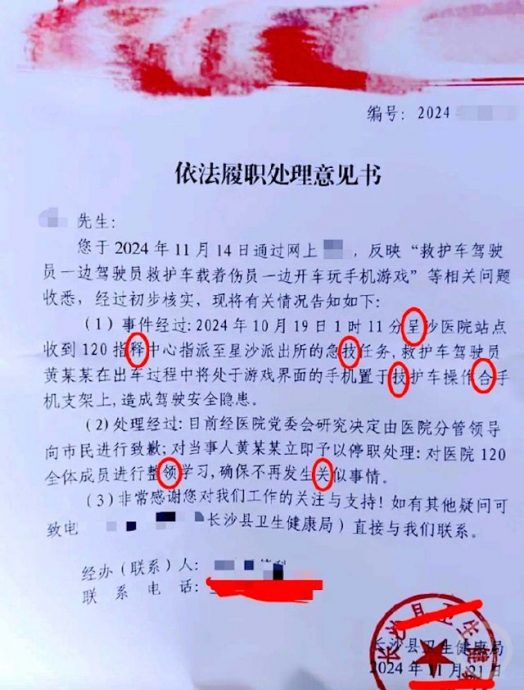 编号：2024
依法履职处理意见书
先生：
您于2024年11月14日通过网上，反映“救护车驾驶
员一边驾驶员救护车载着伤员一边开车玩手机游戏”等相关问题
收悉，经过初步核实，现将有关情况告知如下：
（1）事件经过：2024年10月19日1时11分呈沙医院站点
收到120指释中心指派至星沙派出所的急技任务，救护车驾驶员
黄某某在出车过程中将处于游戏界面的手机置于技护车操作合手
机支架上，造成驾驶安全隐患。
（2）处理经过：目前经医院党委会研究决定由医院分管领导
向市民进行致歉；对当事人黄某某立即予以停职处理：对医院120
全体成员进行整领学习，确保不再发生关似事情。
（3）非常感谢您对我们工作的关注与支持！如有其他疑问可
致电 长沙县卫生健康局）直接与我们联系。
经办（联系）人：
联系电话：
长沙县卫生健康局
2024年11月21日